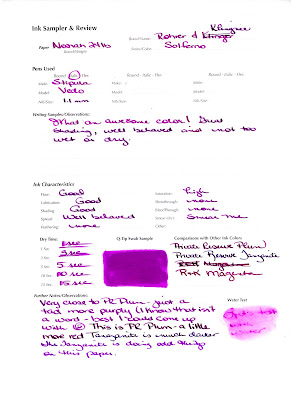 Ink Sampler & Review
Klingner
Brand/Name: Rohrer &
Paper Neenah 24 lb
Ink/Color: Solferno
Pens Used
Round - Italic - Flex Round - Italic - Flex Round - Italic - Flex
Make: Stipula Make: Make:
Model: Vedo Model: Model:
Nib Size: 1.1 mm Nib Size: Nib Size:
Writing Samples/Observations:
What an awesome color! Good
shading, well behaved and not too
wet or dry.
Ink Characteristics
Flow: Good Saturation: high
Lubrication: Good Showthrough: none
Shading: Good Bleedthrough: none
Spread: Well behaved Smear (dry): Smear me
Feathering: none Other:
Dry Time Q-Tip Swab Sample Comparisons with Other Ink Colors
Private Reserve Plum
Private Reserve Tanzanite
5 sec
10 sec R+K Magenta
15 sec
Further Notes/Observations: Water Test
Very close to PR Plum - just a
tad more purply (I know that isn't
a word - best I could come up
with ☺ This is PR Plum - a little
more red Tanzanite is much darker
the Tanzanite is doing odd things
on this paper.